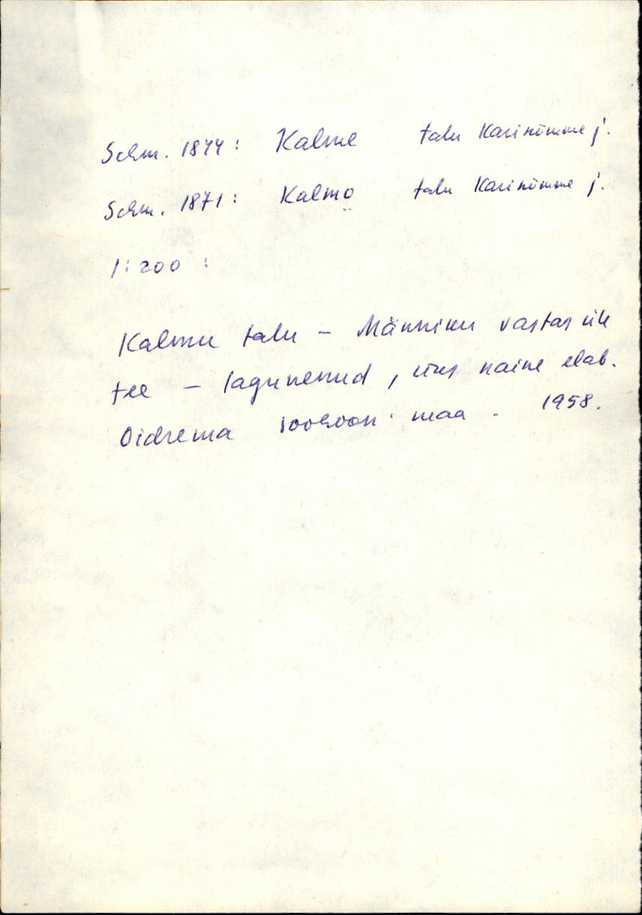 Schm. 1844: Kalme talu Karinõmme j.
Schm. 1871: Kalmo talu Karinõmme j.
1:200 :
Kalmu talu – Männiku vastas üle
tee – lagunenud, üks naine elab.
Oidrema sovhoosi maa. 1958.